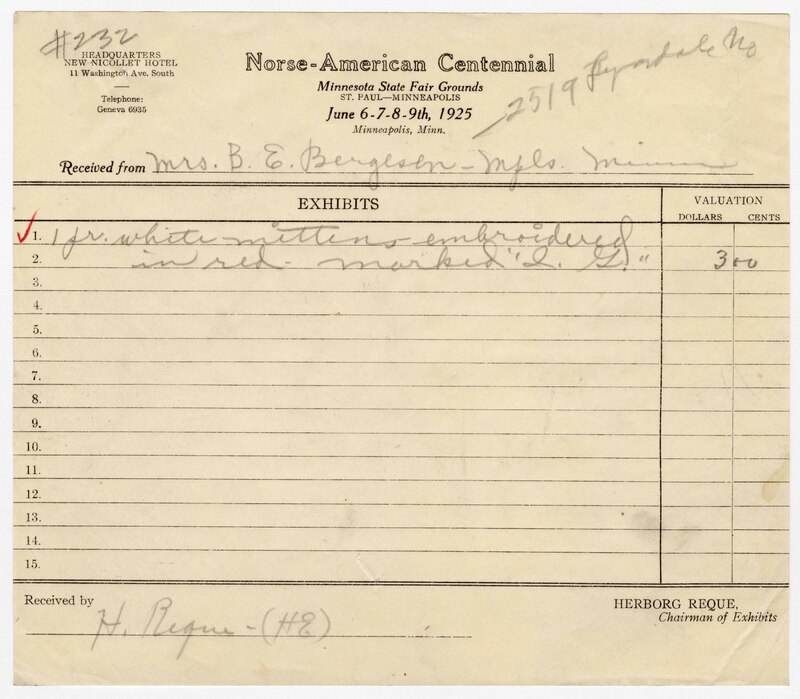 #232
HEADQUARTERS
NEW NICOLLET HOTEL
11 Washington Ave. South
Telephone:
Geneva 6935
Norse-American Centennial
Minnesota State Fair Grounds
ST. PAUL—MINNEAPOLIS
June 6-7-8-9th, 1925
Minneapolis, Minn.
2519 Lyndale No
Received from Mrs. B. E. Bergeson - Mpls. Minn
EXHIBITS
VALUATION
DOLLARS CENTS
1. 1 pr. white mittens embroidered
2. in red - marked "I. G." 3 00
3.
4.
5.
6.
7.
8.
9.
10.
11.
12.
13.
14.
15.
Received by H. Reque - (HE)
HERBORG REQUE,
Chairman of Exhibits